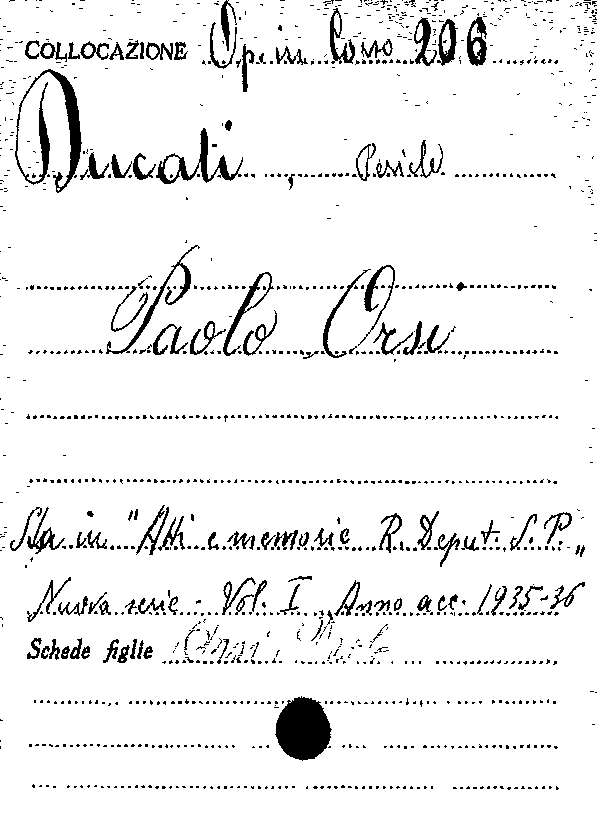 COLLOCAZIONE Op. in Corso 206
Ducati, Pericle
Paolo Orsi
Sta in "Atti e memorie R. Deput. S. P."
Nuova serie - Vol. I, Anno acc. 1935-36
Schede figlie Orsi, Paolo